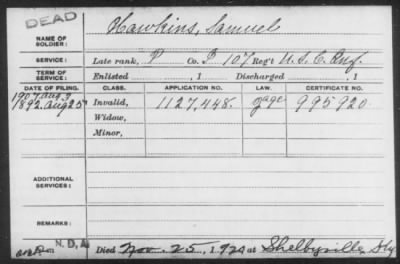 DEAD
Hawkins, Samuel
NAME OF
SOLDIER:
SERVICE:
Late rank, P Co. B 107 Reg't U.S.C. Inf.
TERM OF
SERVICE:
Enlisted , 1 Discharged , 1
DATE OF FILING. CLASS. APPLICATION NO. LAW. CERTIFICATE NO.
1907. Aug. 9
1892. Aug 25 Invalid, 1127,448. 995920.
Widow,
Minor,
ADDITIONAL
SERVICES:
REMARKS:
N.D.A
Died Nov. 25, 1920 at Shelbyville, Ky